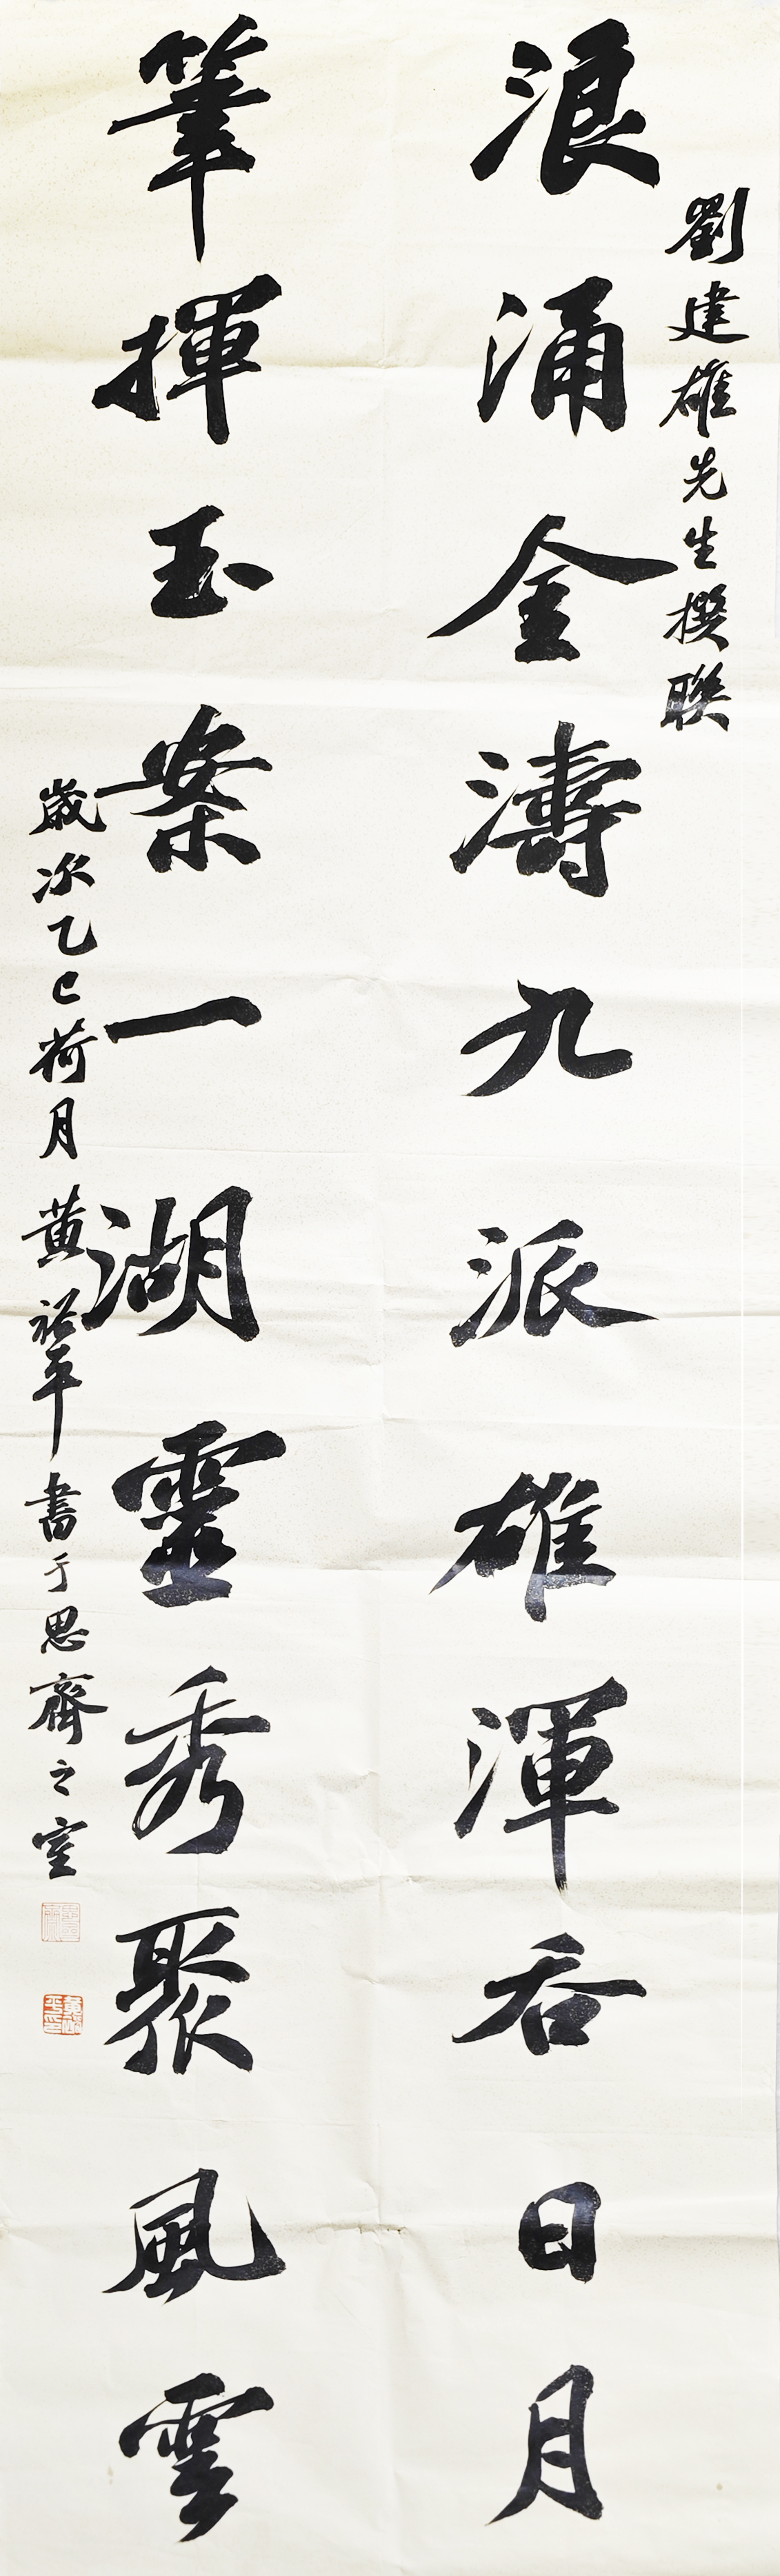 劉建雄先生撰聯
浪涌金濤九派雄渾吞日月
筆揮玉案一湖靈秀聚風雲
歲次乙巳荷月黃裕平書于思齊之室